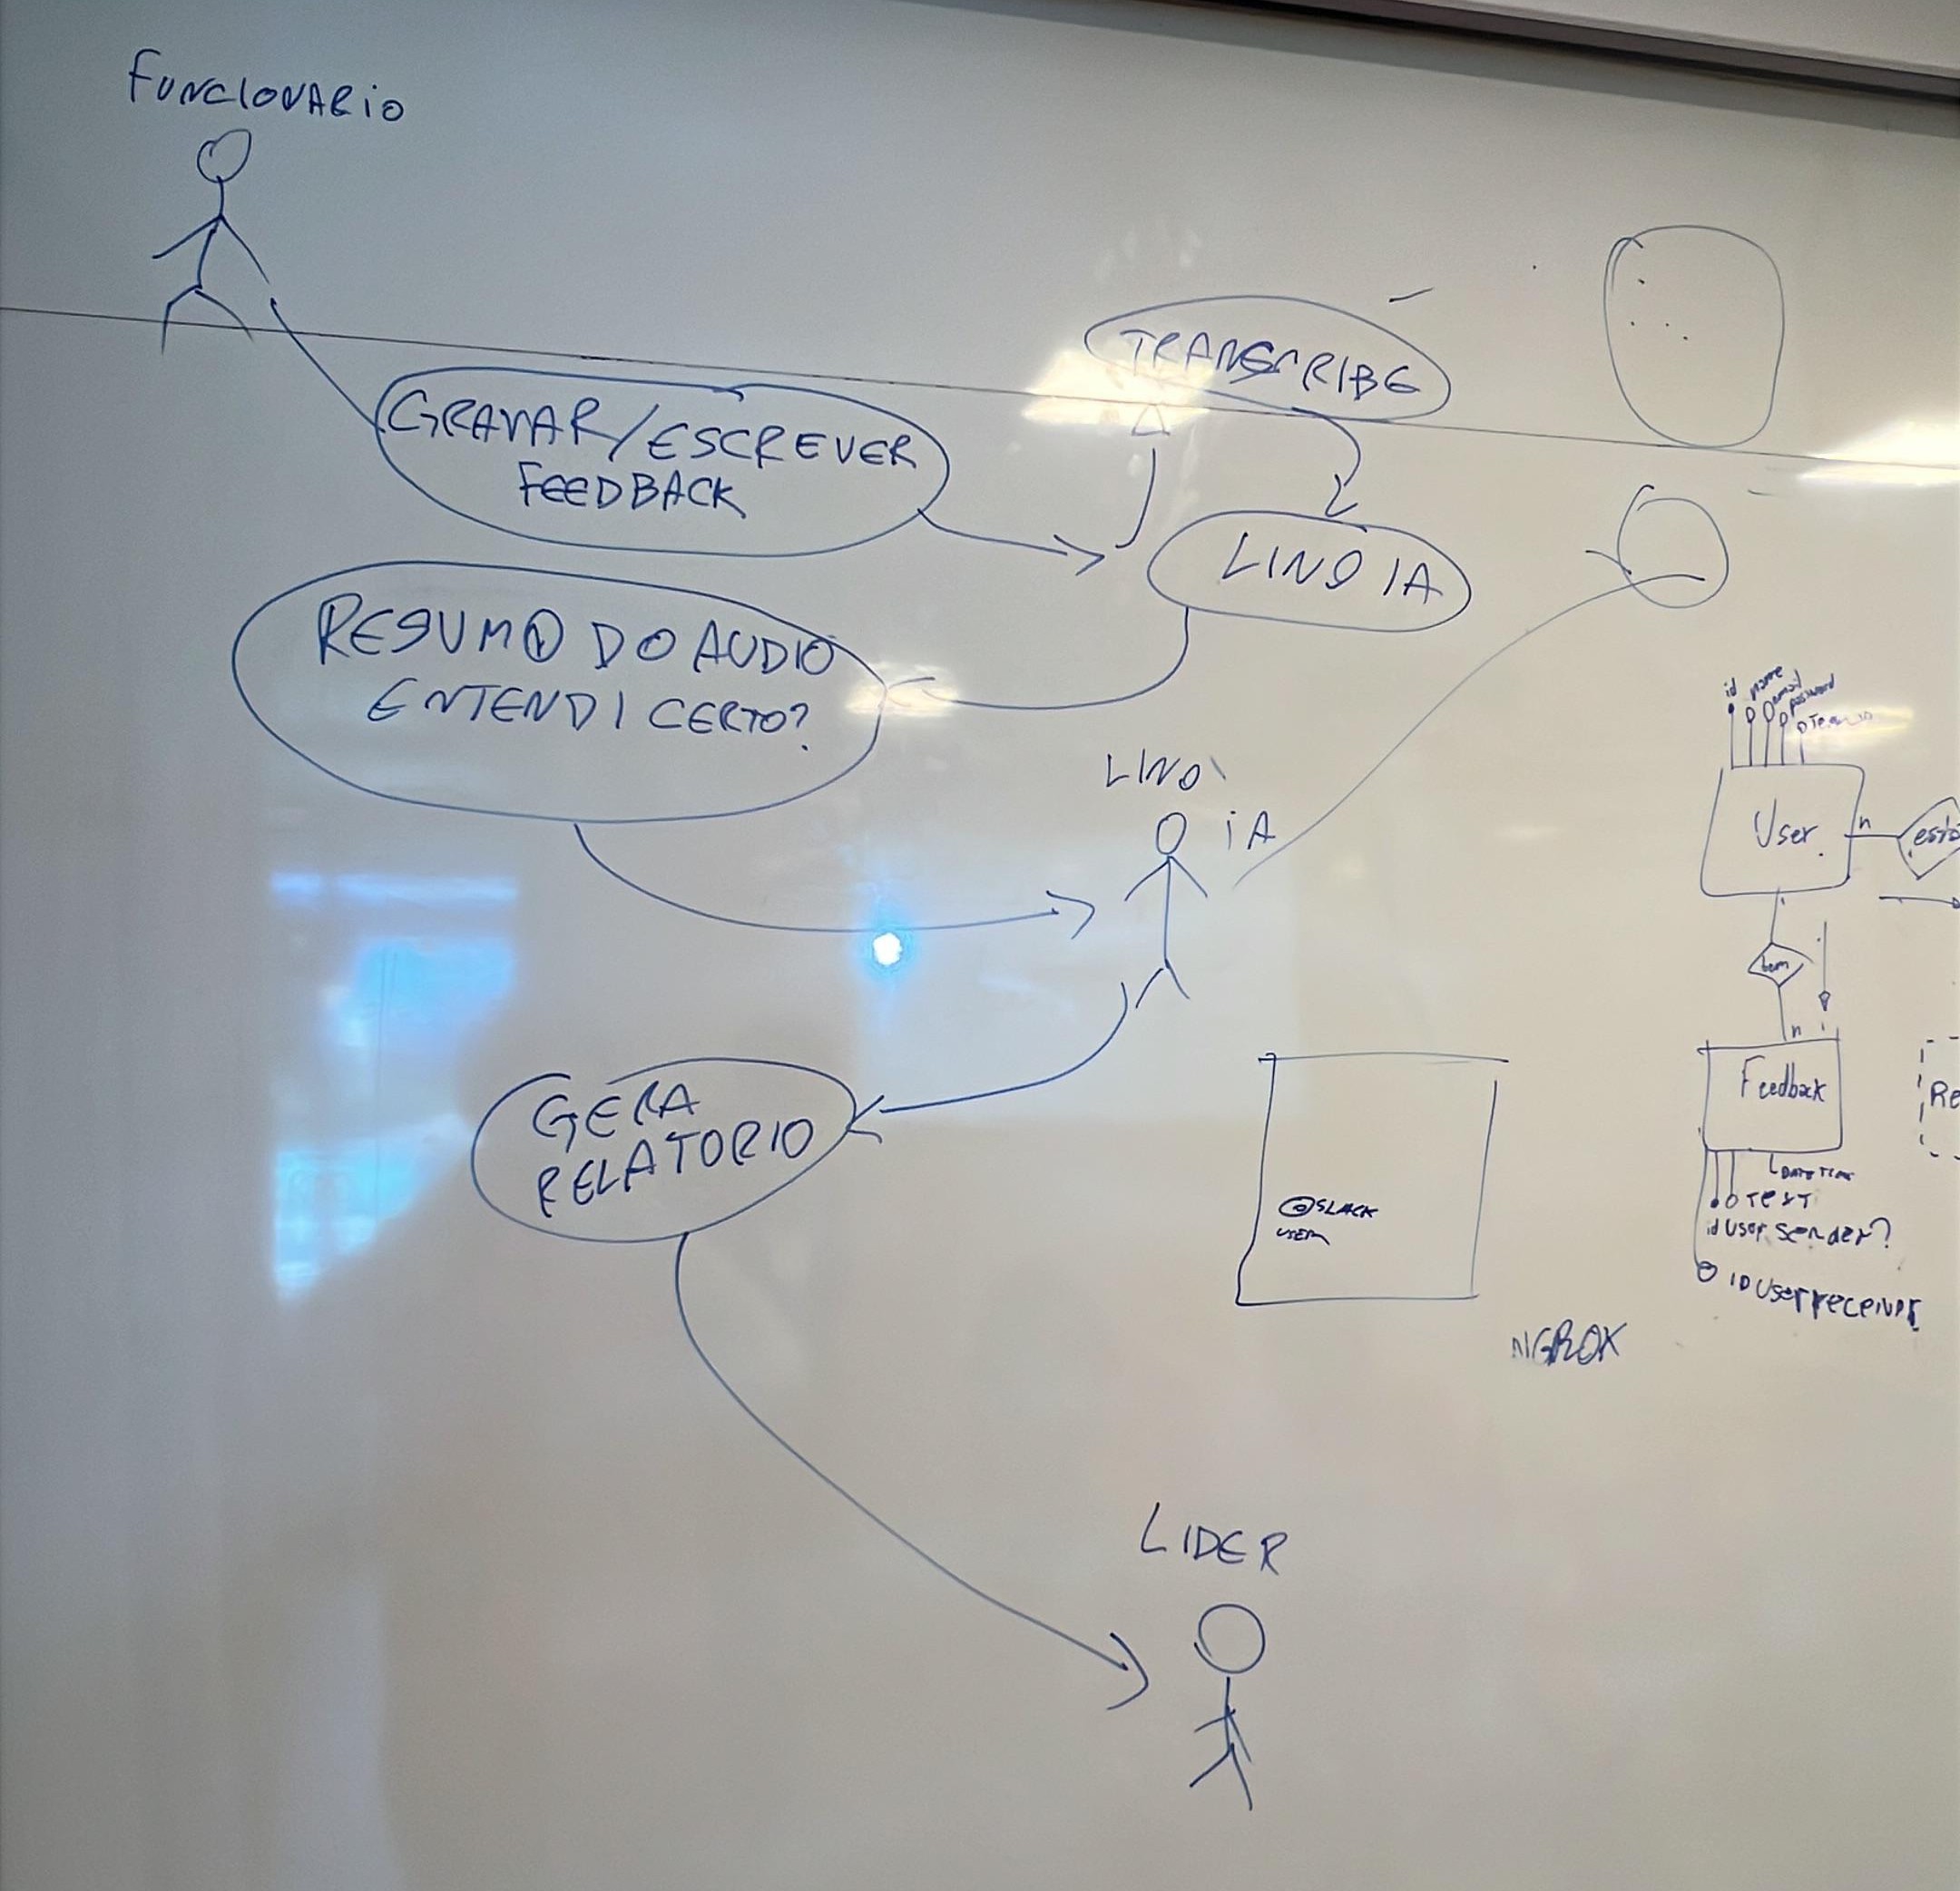 FUNCIONARIO
GRAVAR/ESCREVER
FEEDBACK
TRANSCRIBE
LINO IA
RESUMO DO AUDIO
ENTENDI CERTO?
LINO
iA
GERA
RELATORIO
LIDER
@SLACK
USER
NGROK
id
name
email
password
User
n
tem
n
Feedback
DATETIME
TEXT
id user sender?
ID User receiver
Re